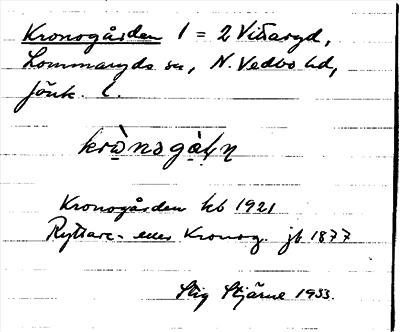 Kronogården 1 = 2 Vittaryd,
Lommaryds sn, N. Vedbo hd,
Jönk. L.
krò̱nəgàɳ
Kronogården kb 1921
Ryttare- eller Kronog. jb 1877
Stig Stjärne 1933.